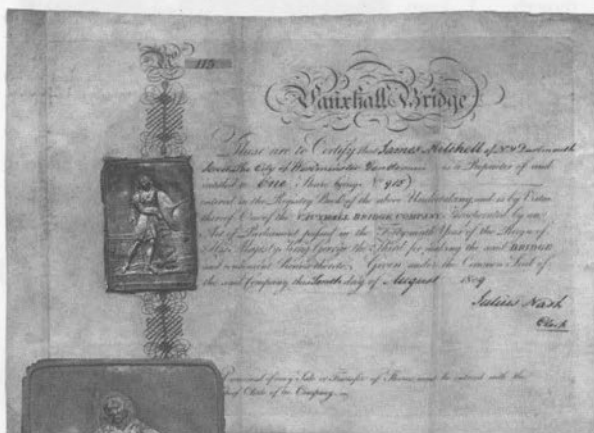 No. 115
Vauxhall Bridge
These are to Certify that James Mitchell of No. Dartmouth
City of Westminster Gentleman is a Proprietor of and
entitled to One Share being No. 915
entered in the Registry Book of the above Undertaking and is by Virtue
thereof One of the VAUXHALL BRIDGE COMPANY Incorporated by an
Act of Parliament passed in the Forty ninth Year of the Reign of
His Majesty King George the Third for making the said BRIDGE
and convenient Roads thereto. Given under the Common Seal of
the said Company this Tenth day of August 1809
Julius Nash
Clerk
of every Sale or Transfer of Shares must be entered with the
Clerk of the Company